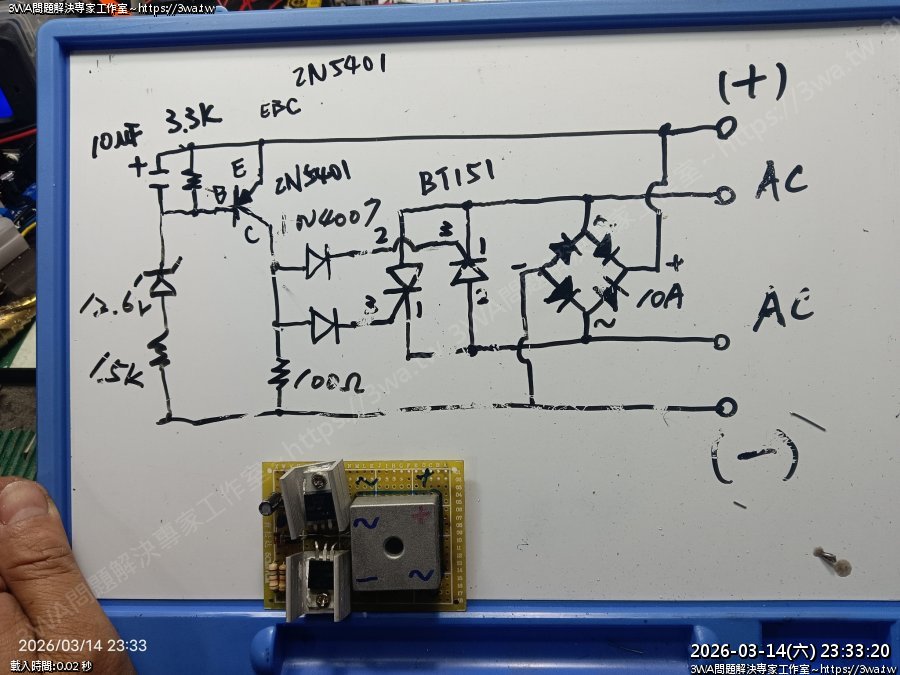 3WA問題解決專家工作室~https://3wa.tw
2N5401
EBC
(+)
10uF
3.3K
+
E
B
C
2N5401
BT151
AC
N4007
2
3
1
~
-
+
13.6V
3
1
2
10A
~
AC
1.5K
100Ω
(-)
~
+
~
+
-
~
2026/03/14 23:33
載入時間:0.02 秒
2026-03-14(六) 23:33:20
3WA問題解決專家工作室~https://3wa.tw